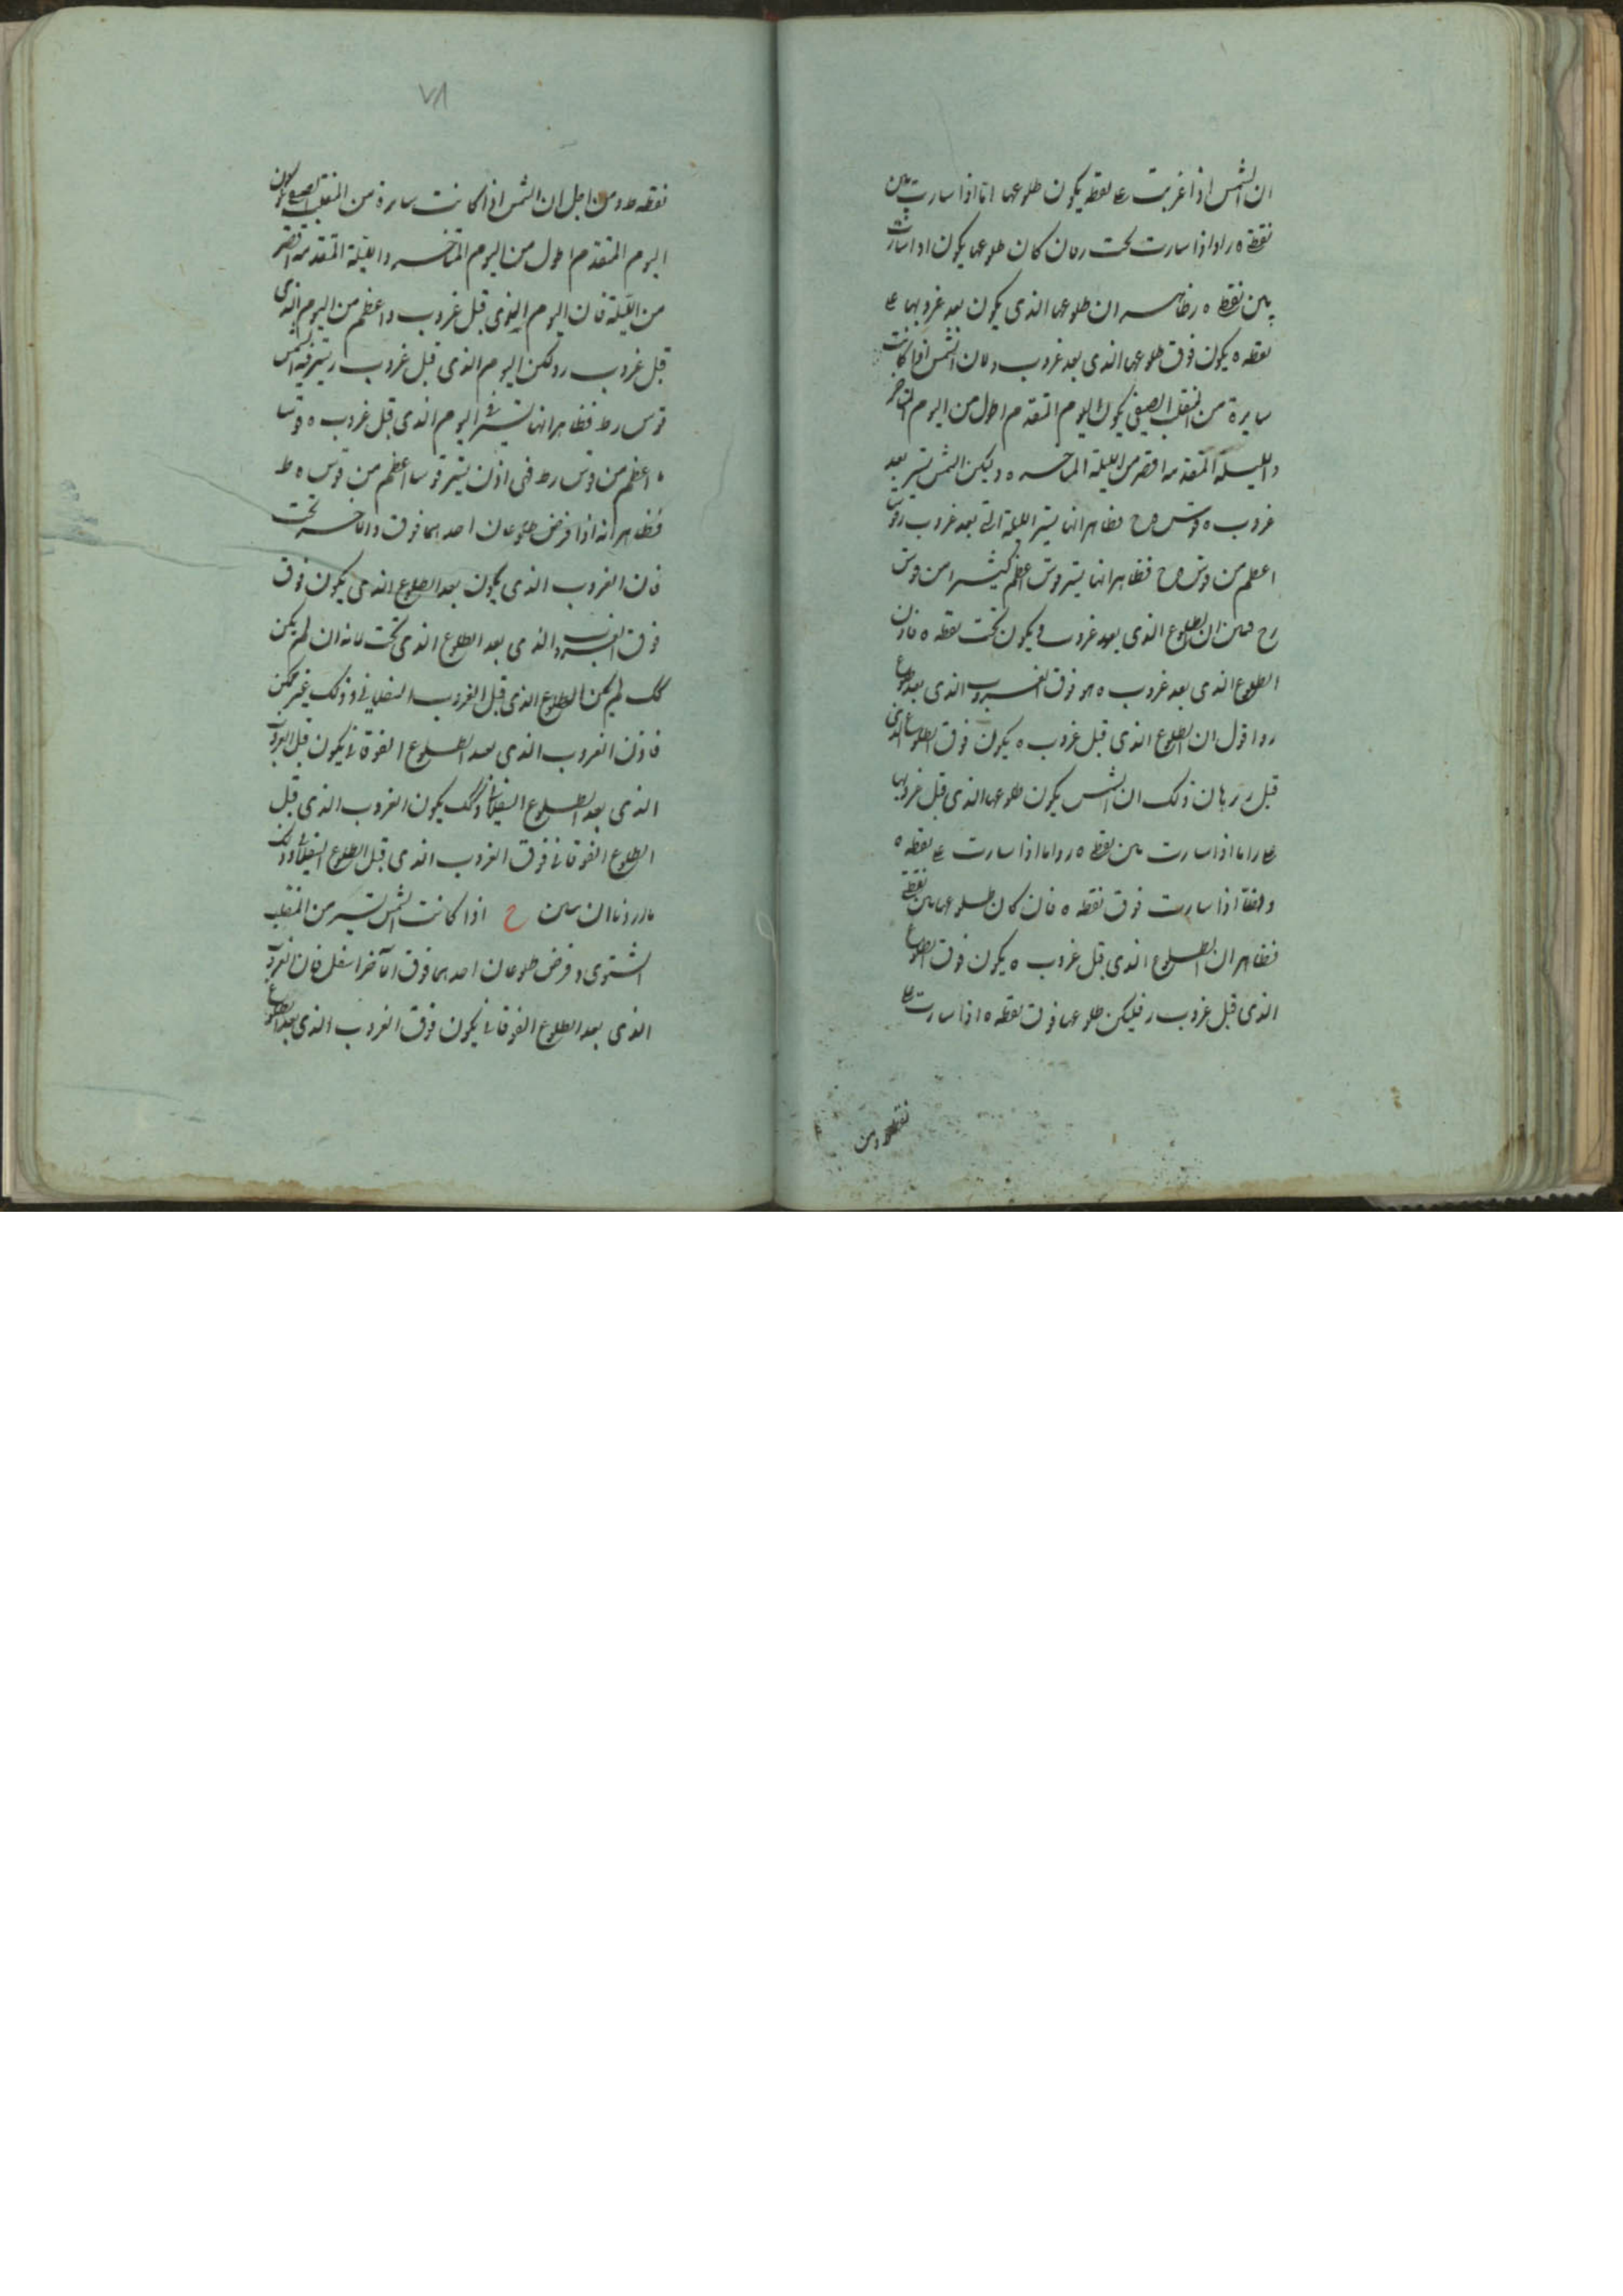 ان الشمس اذا غربت علی نقطه یکون طلوعها اما اذا سارت بین
نقطة ه ر او اذا سارت تحت ر فان کان طلوعها یکون اذا سارت
بین نقطه ه ر فظاهر ان طلوعها الذی یکون بعد غروبها علی
نقطه ه یکون فوق طلوعها الذی بعد غروب ر لان الشمس اذا کانت
سایرة من المنقلب الصیفی یکون الیوم المتقدم اطول من الیوم المتاخر
و اللیلة المتقدمه اقصر من اللیلة المتاخره و لیکن الشمس تسیر بعد
غروب ه قوس ه ح فظاهر انها تسیر اللیلة التی بعد غروب ر قوسا
اعظم من قوس ه ح فظاهر انها تسیر قوس اعظم کثیرا من قوس
ر ح فبین ان الطلوع الذی بعد غروب ر یکون تحت نقطه ه فاذن
الطلوع الذی بعد غروب ه هو فوق الغروب الذی بعد طلوع
ر و اقول ان الطلوع الذی قبل غروب ه یکون فوق الطلوع الذی
قبل ر برهان ذلک ان الشمس یکون طلوعها الذی قبل غروبها
علی ر اما اذا سارت بین نقطه ه ر و اما اذا سارت علی نقطه ه
و اما اذا سارت فوق نقطه ه فان کان طلوعها بین نقطة
فظاهر ان الطلوع الذی قبل غروب ه یکون فوق الطلوع
الذی قبل غروب ر فلیکن طلوعها فوق نقطه ه اذا سارت علی
نقطه ومن
٧٨
نقطه ط و من اجل ان الشمس اذا کانت سایرة من المنقلب الصیفی یکون
الیوم المتقدم اطول من الیوم المتاخر و اللیلة المتقدمه اقصر
من اللیلة فان الیوم الذی قبل غروب ه اعظم من الیوم الذی
قبل غروب ر ولکن الیوم الذی قبل غروب ر تسیر فیه الشمس
قوس ر ط فظاهر انها تسیر فی الیوم الذی قبل غروب ه قوسا
اعظم من قوس ر ط فهی اذن تسیر قوسا اعظم من قوس ه ط
فظاهر انه اذا فرض طلوعان احدهما فوق و الاخر تحت
فان الغروب الذی یکون بعد الطلوع الذی یکون فوق
فوق الغروب الذی بعد الطلوع الذی تحت لانه ان لم یکن
کک لم یکن الطلوع الذی قبل الغروب السفلانی و ذلک غیر ممکن
فاذن الغروب الذی بعد الطلوع الفوقانی یکون قبل الغروب
الذی بعد الطلوع السفلانی و کک یکون الغروب الذی قبل
الطلوع الفوقانی فوق الغروب الذی قبل الطلوع السفلانی و ذلک
ما اردنا ان نبین ح اذا کانت الشمس تسیر من المنقلب
الشتوی و فرض طلوعان احدهما فوق الآخر اسفل فان الغروب
الذی بعد الطلوع الفوقانی یکون فوق الغروب الذی بعد الطلوع